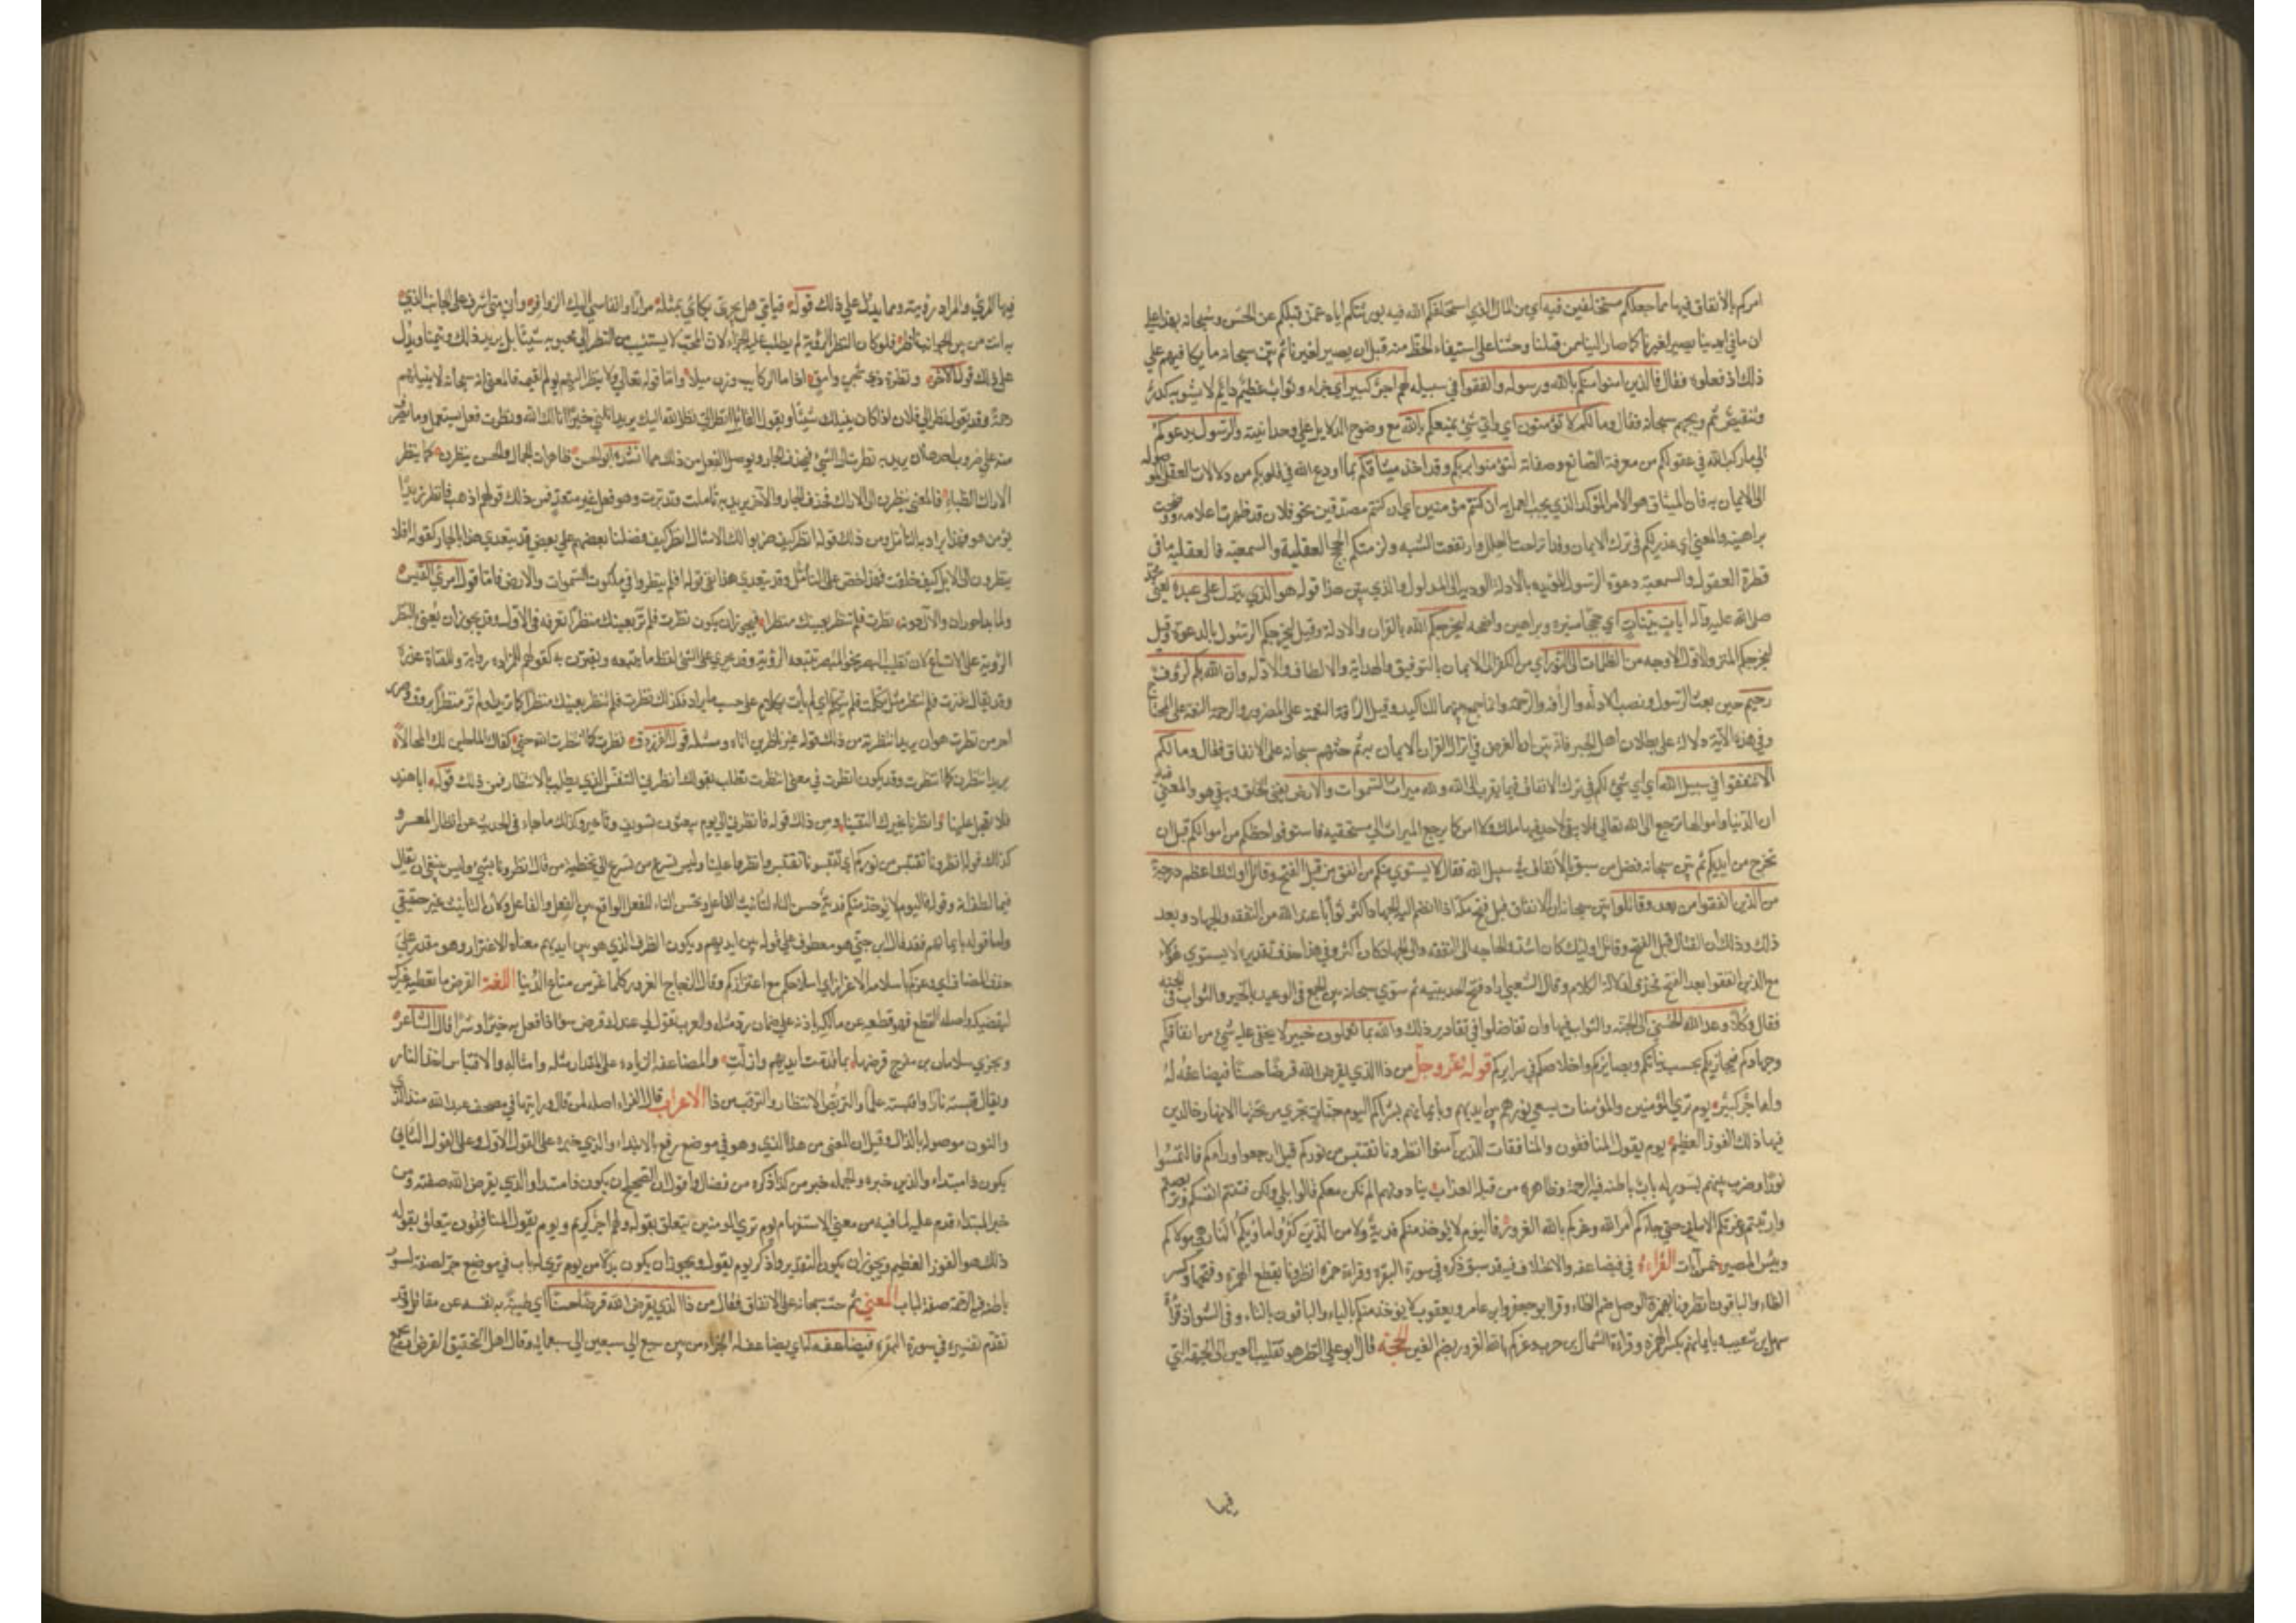 امركم بالانفاق فيها مما جعلكم مستخلفين فيه اي من المال الذي استخلفكم الله فيه بوراثتكم اياه عمن قبلكم عن الحسن وسبحانه بهذا علي
ان ما في ايدينا يصير لغيرنا كما صار الينا من قبلنا وحثنا على استيفاء الحظ منه قبل ان يصير لغيرنا ثم بين سبحانه ما يكافيهم علي
ذلك اذ فعلوه فقال فالذين امنوا منكم بالله ورسوله وانفقوا في سبيله لهم اجر كبير اي جزاء وثواب عظيم دايم لا يشوبه كدر
وتنقيص ثم وبخهم سبحانه فقال وما لكم لا تؤمنون اي واي شيء يمنعكم بالله مع وضوح الدلايل علي وحدانيته والرسول يدعوكم
الي ما ركب الله في عقولكم من معرفة الصانع وصفاته لتؤمنوا بربكم وقد اخذ ميثاقكم بما اودع الله في قلوبكم من دلالات العقل الموصلة
الى الايمان به فان الميثاق هو الامر المؤكد الذي يجب العمل به ان كنتم مؤمنين اي ان كنتم مصدقين بحق فلان قد ظهرت اعلامه ووضحت
براهينه والمعني اي عذر لكم في ترك الايمان وقد زاحت العلل وارتفعت الشبه ولزمتكم الحجج العقلية والسمعية فالعقلية ما في
فطرة العقول والسمعية دعوة الرسول المؤيد بالادلة المودية الى المدلول والذي يبين هذا قوله هو الذي ينزل على عبده يعني محمد
صلى الله عليه وآله آيات بينات اي حججا منيرة وبراهين واضحة ليخرجكم الله بالقران والادلة وقيل ليخرجكم الرسول بالدعوة وقيل
ليخرجكم المنزل والاول الاوجه من الظلمات الى النور اي من الكفر الى الايمان بالتوفيق والهداية والالطاف والادلة وان الله بكم لرؤف
رحيم حين بعث الرسول ونصب الادلة والرأفة والرحمة وانما جمع بينهما للتاكيد وقيل الرأفة النعمة على المضرور والرحمة النعمة على المحتاج
وفي هذه الآية دلالة على بطلان اهل الجبر فانه بين ان الغرض في انزال القران الايمان به ثم حثهم سبحانه على الانفاق فقال وما لكم
الا تنفقوا في سبيل الله اي اي شيء لكم في ترك الانفاق فيما يقرب الى الله ولله ميراث السموات والارض يعني يفني الخلق ويبقي هو والمعني فيه
ان الدنيا واموالها ترجع الى الله تعالي فلا يبقي لاحد فيها ملك ولا امر كما يرجع الميراث الي مستحقيه فاستوفوا حظكم من اموالكم قبل ان
تخرج من ايديكم ثم بين سبحانه فضل من سبق بالانفاق في سبيل الله فقال لا يستوي منكم من انفق من قبل الفتح وقاتل اولئك اعظم درجة
من الذين انفقوا من بعد وقاتلوا بين سبحانه ان الانفاق قبل فتح مكة اذا انضم اليه الجهاد اكثر ثوابا عند الله من النفقة والجهاد وبعد
ذلك وذلك ان القتال قبل الفتح كان اشد والحاجة الى النفقة والى الجهاد كان اكثر وفي هذا حذف تقديره لا يستوي هؤلاء
مع الذين انفقوا بعد الفتح فحذف لدلالة الكلام وقال الشعبي اراد فتح الحديبية ثم سوي سبحانه بين الجميع في الوعيد بالخير والثواب في الجنة
فقال وكلا وعد الله الحسني الى الجنة والثواب فيها وان تفاضلوا في مقادير ذلك والله بما تعملون خبير لا يخفى عليه شيء من انفاقكم
وجهادكم فيجازيكم بحسب نياتكم وبصايركم واخلاصكم في سرايركم قوله عز وجل من ذا الذي يقرض الله قرضا حسنا فيضاعفه له
وله اجر كبير يوم تري المؤمنين والمؤمنات يسعي نورهم بين ايديهم وبايمانهم بشراكم اليوم جنات تجري من تحتها الانهار خالدين
فيها ذلك الفوز العظيم يوم يقول المنافقون والمنافقات للذين آمنوا انظرونا نقتبس من نوركم قيل ارجعوا وراءكم فالتمسوا
نورا وضرب بينهم بسور له باب باطنه فيه الرحمة وظاهره من قبله العذاب ينادونهم الم نكن معكم قالوا بلي ولكن فتنتم انفسكم وتربصتم
وارتبتم وغرتكم الاماني حتي جاءكم امر الله وغركم بالله الغرور فاليوم لا يؤخذ منكم فدية ولا من الذين كفروا ماويكم النار هي موليكم
وبئس المصير خمس آيات القراءة في فيضاعفه والاختلاف فيه قد سبق ذكره في سورة البقرة وقراءة حمزة انظرونا بقطع الهمزة وفتحها وكسر
الظاء والباقون انظرونا بهمزة الوصل ضم الظاء وقرا ابو جعفر وابن عامر ويعقوب لا تؤخذ منكم بالتاء والباقون بالياء وفي الشواذ قراءة
سهل بن شعيب وبايمانهم بكسر الهمزة وقراءة السماك بن حرب وغركم بالله الغرور بضم الغين الحجة قال ابو علي النظر هو تقليب العين الى الجهة التي
فيها
فيها المرئي والمراد رؤيته ومما يدل علي ذلك قوله فيا مي هل يجزي بكائي بمثله مرارا وانفاسي اليك الزوافر واني متي اشرف على الجانب الذي
به انت من بين الجوانب ناظر فلو كان النظر الرؤية لم يطلب عليه الجزاء لان المحب لا يستثيب من النظر الي محبوبه شيئا بل يريد ذلك ويتمناه ويدل
علي ذلك قول الآخر ونظرة ذي شجن وامق اذا ما الركايب جاوزن ميلا واما قوله تعالي ولا ينظر اليهم يوم القيمة فالمعني انه سبحانه لا ينيلهم
رحمة وقد يقول نظر الي فلان اذا كان ينيلك شيئا ويقول القائل انظر الي نظر الله اليك يريد انلني خيرا انالك الله ونظرت فعل يستعمل وما تصرف
منه علي ضروب احدها ان يريد به نظرت الى الشيء فيحذف الجار ويوصل الفعل من ذلك ما انشده ابو الحسن ظاهرات الجمال والحسن ينظرن كما ينظر
الاراك الظباء فالمعني ينظرن الى الاراك فحذف الجار والآخر يريد به تاملت وتدبرت وهو فعل غير متعد فمن ذلك قولهم اذهب فانظر زيدا
ابو من هو فهذا يراد به التامل ومن ذلك قوله انظر كيف ضربوا لك الامثال انظر كيف فضلنا بعضهم على بعض وقد يتعدي هذا بالجار كقوله افلا
ينظرون الى الابل كيف خلقت فهذا حض على التامل وقد يتعدي هذا بفي قوله اولم ينظروا في ملكوت السموات والارض فاما قول امرئ القيس
ولما بدا حوران والآل دونه نظرت فلم تنظر بعينيك منظرا فيجوز ان يكون نظرت فلم تر بعينيك منظرا تعرفه في الآل وقد يجوز ان يعني بالنظر
الرؤية على الاتساع لان تقليب البصر نحو المبصر تتبعه الرؤية وقد يجري على الشيء لفظ ما يتبعه ويقترن به كقولهم للمزادة راوية وللفناة عذرة
وقد يقال نظرت فلم تنظر مثل تكلمت فلم تتكلم اي لم تات بكلام على حسب ما يراد فكذلك نظرت فلم تنظر بعينيك منظرا كما تريد او لم تر منظرا يروق وضرب
آخر من نظرت هو ان يريد انتظرته من ذلك قوله غير ناظرين اناه ومثله قول الفرزدق نظرت كما انتظرت الله حتي كفاك الماحلين لك المحالا
يريد انتظرت كما انتظرت وقد يكون انظرت في معني انتظرت تطلب بقولك انظرني التنفس الذي يطلب بالانتظار فمن ذلك قوله ابا هند
فلا تعجل علينا وانظرنا نخبرك اليقينا ومن ذلك قوله فانظرني الي يوم يبعثون تسويف وتاخير وكذلك ما جاء في الحديث من انظار المعسر و
كذلك قوله انظرونا نقتبس من نوركم اي نقتبس ونا نقتبس وانظروا علينا وليس تسرع من تسرع الى تخطئة من قال انظرونا بشيء وليس ينبغي ان يقال
فيها لطف له وقوله فاليوم لا يؤخذ منكم فدية حسن التاء لتانيث الفاعل وحسن الياء للفصل الواقع بين الفعل والفاعل وكان التانيث غير حقيقي
واما قوله بايمانهم فقد قال ابن جني هو معطوف علي قوله بين ايديهم ويكون الظرف الذي هو بين ايديهم معناه الاغترار وهو مقدر علي
حذف المضاف اي وغركم بالله سلامة الاغترار اي سلامتكم مع اغتراركم وقال الزجاج الغرور كلما غر من متاع الدنيا اللغة القرض ما تعطيه غيرك
ليقضيكه واصله القطع فهو قطعه عن مالكه باذنه علي ضمان رد مثله والعرب تقول لي عندك قرض صدق وقرض سوء اذا فعل به خيرا وشرا قال الشاعر
ويجزي سلامان بن مفرج قرضها بما قدمت ايديهم وازلت والمضاعفة الزيادة على المقدار مثله وامثاله والاقتباس اخذ النار
ويقال قبسته نارا واقتبسته علما والتربص الانتظار والترقب من ذا الاعراب قال الفراء اصله لمن قال ورايتها في مصحف عبد الله منذا الذي
والنون موصولة بالذال وقيل ان المعني من هذا الذي وهو في موضع رفع بالابتداء والذي خبره على القول الاول وعلى القول الثاني
يكون ذا مبتداء والذي خبره والجملة خبر من كذا ذكره من فضال واقول ان الصحيح ان يكون ذا مبتدا والذي يقرض الله صفته ومن
خبر المبتداء قدم عليه لما فيه من معني الاستفهام يوم تري المومنين يتعلق بقوله ولهم اجر كريم ويوم يقول المنافقون يتعلق بقوله
ذلك هو الفوز العظيم ويجوز ان يكون التقدير واذكر يوم يقول ويجوز ان يكون بدلا من يوم تري له باب في موضع جر لصفة لسور
باطنه فيه الرحمة صفة لباب المعني ثم حث سبحانه على الانفاق فقال من ذا الذي يقرض الله قرضا حسنا اي طيبة به نفسه عن مقاتل وقد
تقدم تفسيره في سورة البقرة فيضاعفه له اي يضاعف له الجزاء من بين سبع الي سبعين الي سبعماية وقال اهل التحقيق القرض الحسن يجمع